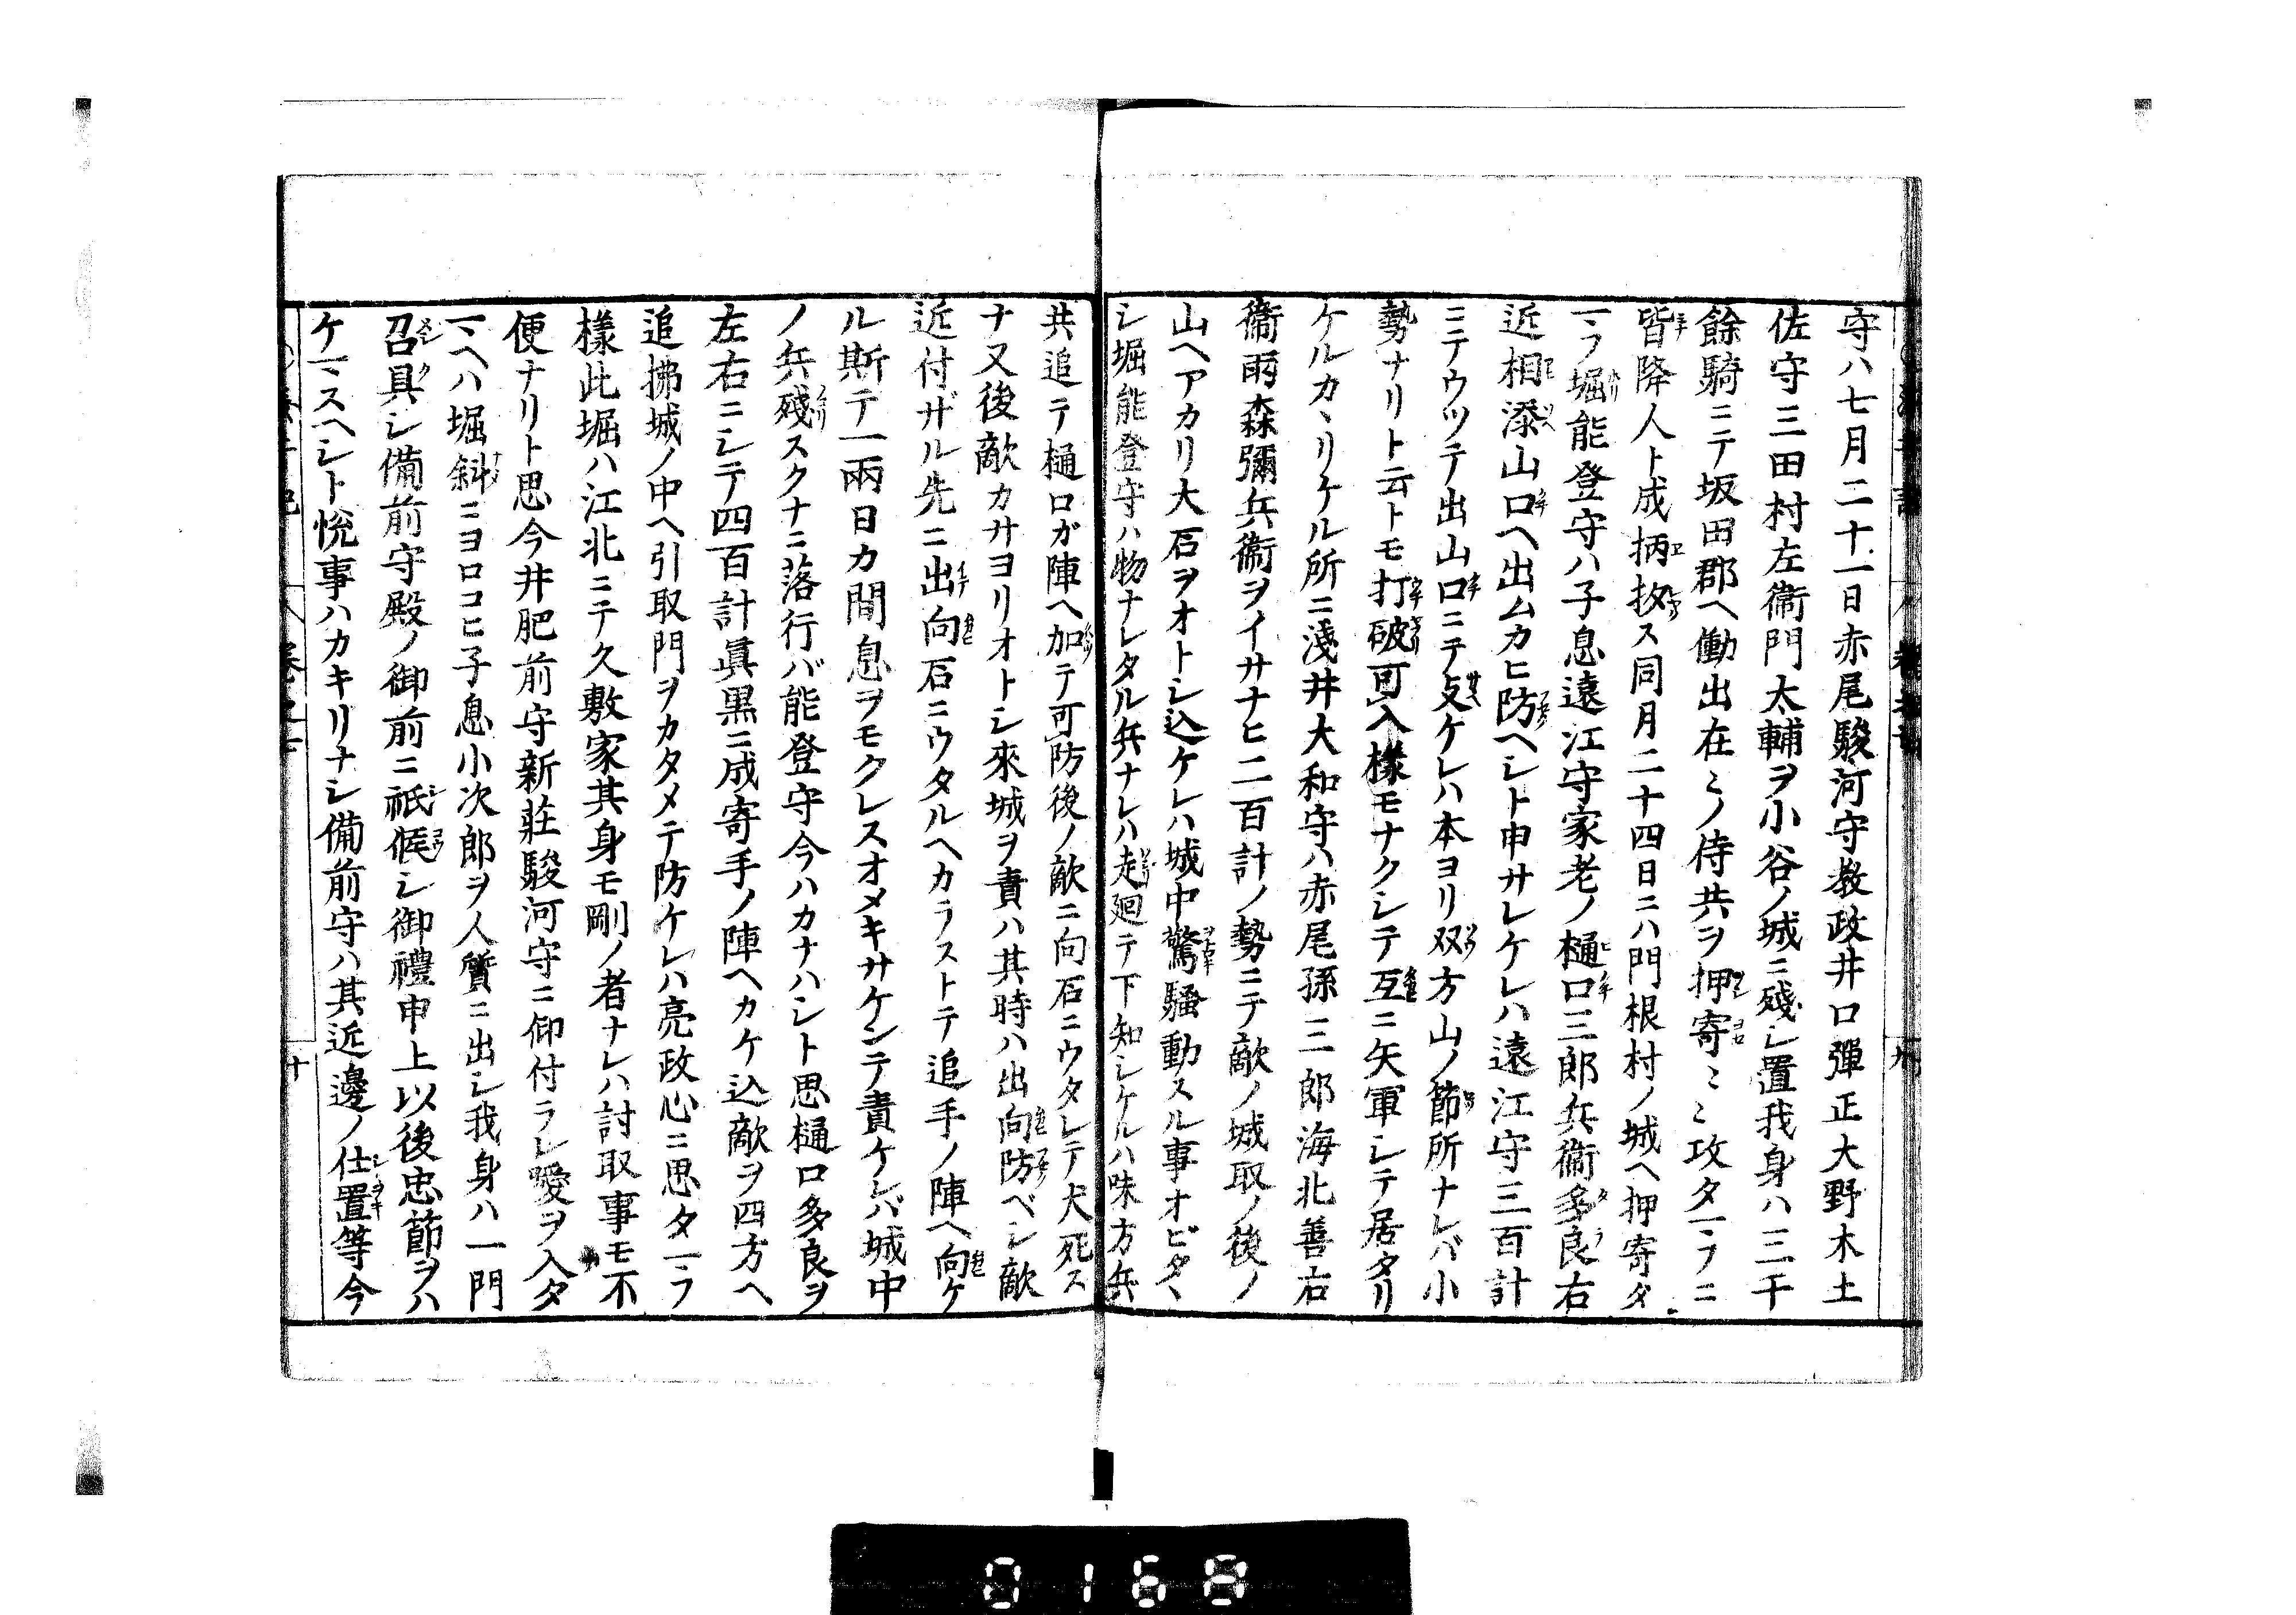 守ハ七月二十一日赤尾駿河守教政井口彈正大野木土
佐守三田村左衞門太輔ヲ小谷ノ城ニ殘シ置我身ハ三千
餘騎ニテ坂田郡ヘ働出在〻ノ侍共ヲ押寄〻〻攻タマフニ
皆降人ト成抦抜ス同月二十四日ニハ門根村ノ城ヘ押寄タ
マフ堀能登守ハ子息遠江守家老ノ樋口三郎兵衞多良右
近相添山口ヘ出ムカヒ防ヘシト申サレケレハ遠江守三百計
ニテウツテ出山口ニテ攴ケレハ本ヨリ双方山ノ節所ナレバ小
勢ナリト云トモ打破可入樣モナクシテ互ニ矢軍シテ居タリ
ケルカヽリケル所ニ淺井大和守ハ赤尾孫三郎海北善右
衞雨森彌兵衞ヲイサナヒ二百計ノ勢ニテ敵ノ城取ノ後ノ
山ヘアカリ大石ヲオトシ込ケレハ城中驚騷動スル事オビタヽ
シ堀能登守ハ物ナレタル兵ナレハ走廻テ下知シケルハ味方兵
共追テ樋口ガ陣ヘ加テ可防後ノ敵ニ向石ニウタレテ犬死ス
ナ又後敵カサヨリオトシ來城ヲ責ハ其時ハ出向防ベシ敵
近付ザル先ニ出向石ニウタルヘカラストテ追手ノ陣ヘ向ケ
ル斯テ一兩日カ間息ヲモクレスオメキサケンテ責ケレバ城中
ノ兵殘スクナニ落行バ能登守今ハカナハント思樋口多良ヲ
左右ニシテ四百計眞黒ニ成寄手ノ陣ヘカケ込敵ヲ四方ヘ
追拂城ノ中ヘ引取門ヲカタメテ防ケレハ亮政心ニ思タマフ
樣此堀ハ江北ニテ久敷家其身モ剛ノ者ナレハ討取事モ不
便ナリト思今井肥前守新莊駿河守ニ仰付ラレ曖ヲ入タ
マヘハ堀斜ニヨロコヒ子息小次郎ヲ人質ニ出シ我身ハ一門
召具シ備前守殿ノ御前ニ祗候シ御禮申上以後忠節ヲハ
ケマスヘシト悅事ハカキリナシ備前守ハ其近邊ノ仕置等今
十
0168